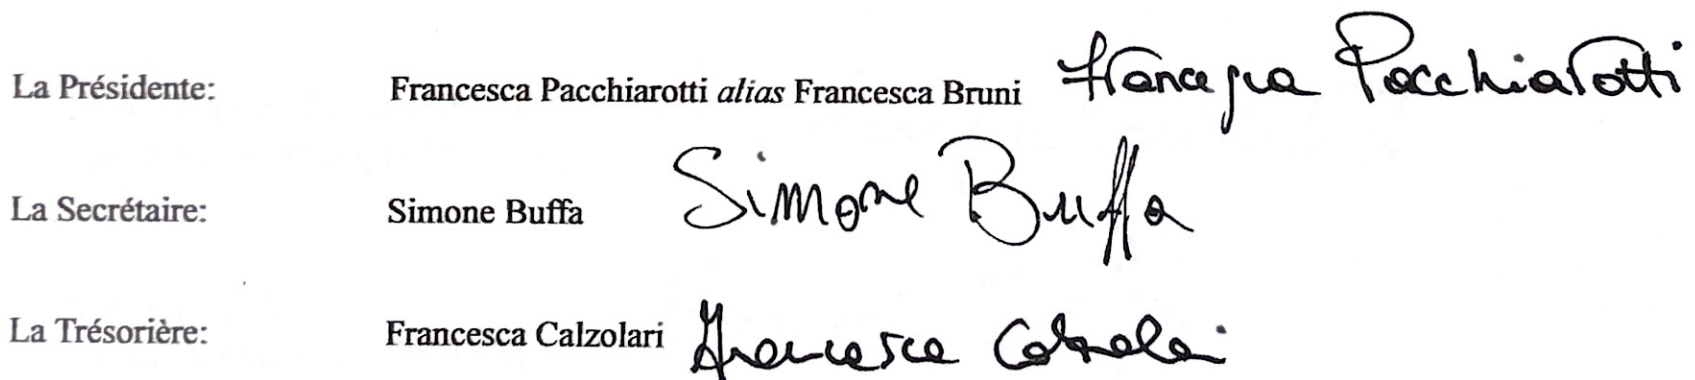 La Présidente: Francesca Pacchiarotti alias Francesca Bruni Francesca Pacchiarotti
La Secrétaire: Simone Buffa Simone Buffa
La Trésorière: Francesca Calzolari Francesca Calzolari